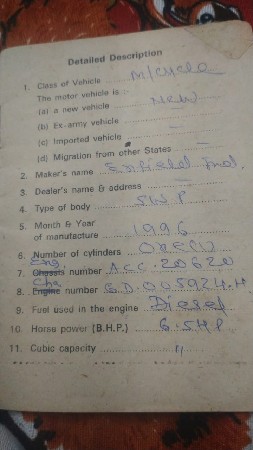 Detailed Description
1. Class of Vehicle M/cycle
The motor vehicle is :-
(a) a new vehicle New
(b) Ex-army vehicle -
(c) Imported vehicle -
(d) Migration from other States -
2. Maker's name Enfield Ind.
3. Dealer's name & address
4. Type of body S.W.P
5. Month & Year
of manufacture 1996
6. Number of cylinders One (1)
Eng
7. Chassis number A.C.C. 20620
Cha
8. Engine number G.D. 005924.H
9. Fuel used in the engine Diesel
10. Horse power (B.H.P.) 6.5HP
11. Cubic capacity "